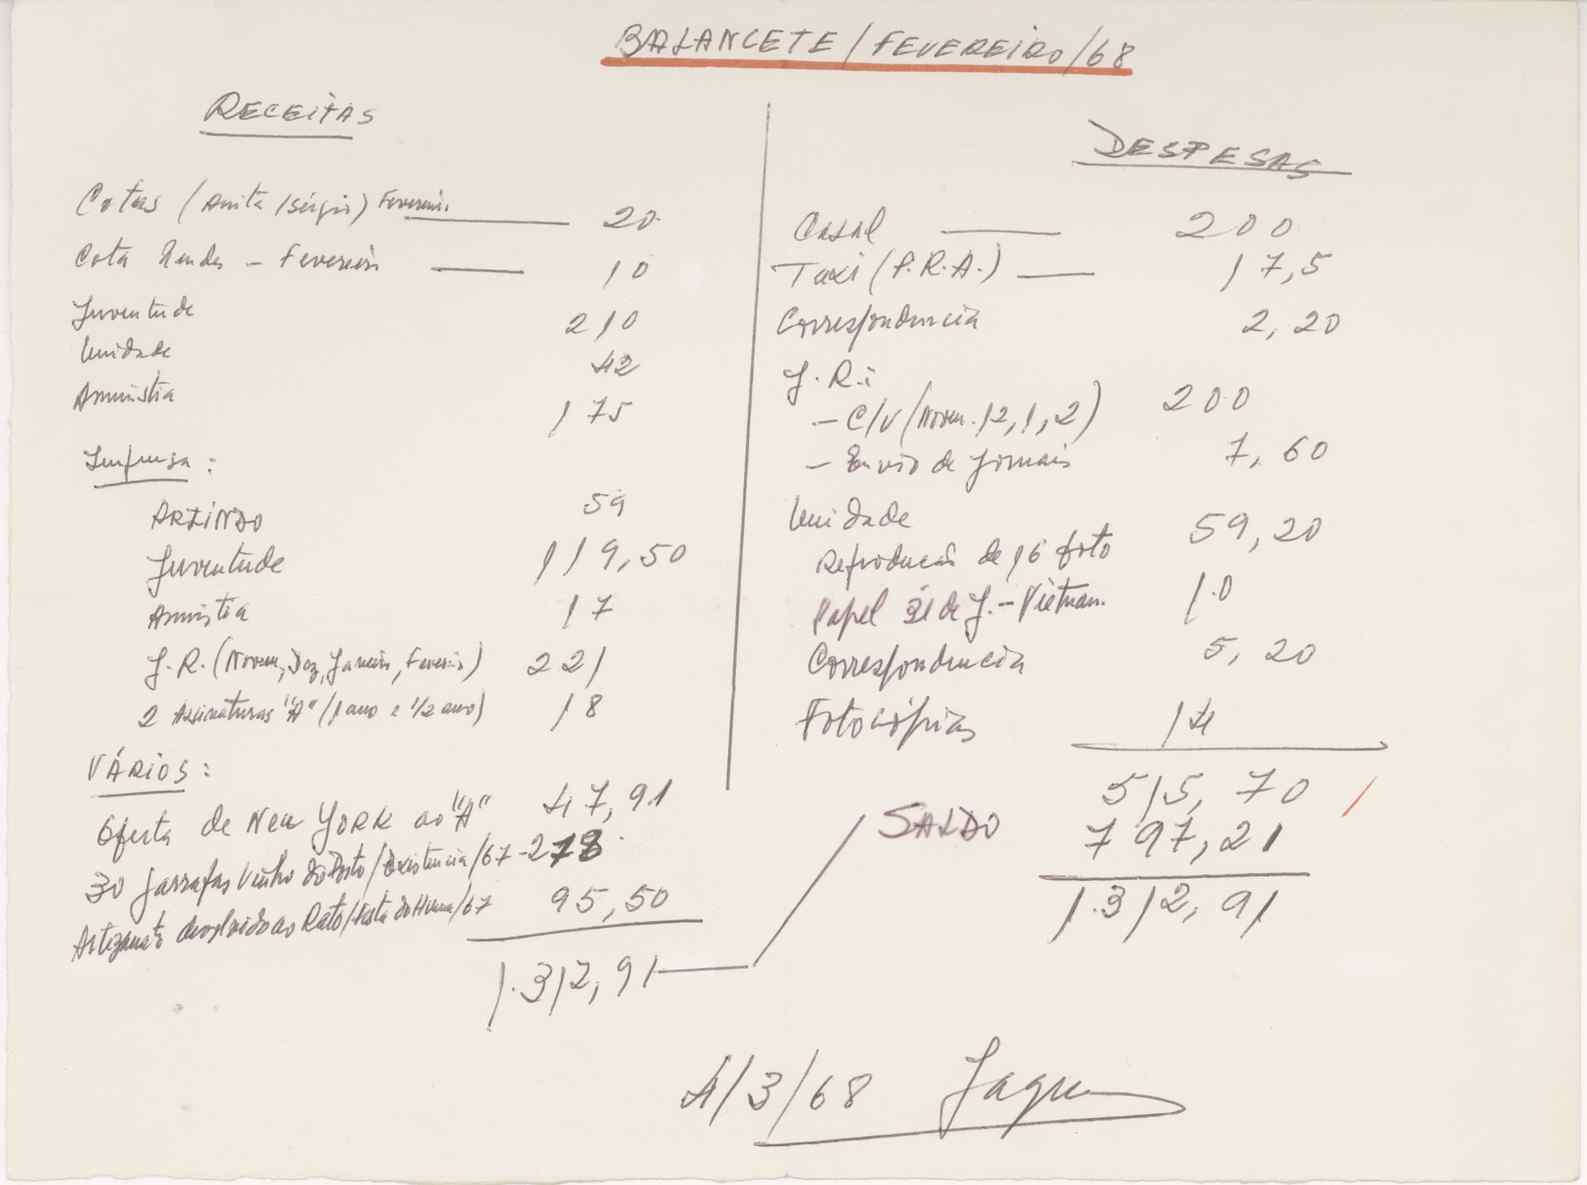 BALANCETE/FEVEREIRO/68
RECEITAS
Cotas (Anita/Sérgio) Fevereiro 20
Cota Mendes - Fevereiro 10
Juventude 210
Unidade 42
Amnistia 175
Imprensa:
ARLINDO 59
Juventude 119,50
Amnistia 17
J.R. (Novem, Dez, Janeiro, Fevereiro) 221
2 Assinaturas "A" (1 ano e 1/2 ano) 18
VÁRIOS:
Oferta de New YORK ao "A" 47,91
30 Garrafas Vinho do Porto/Existencia/67 - 278
Artezanato devolvido ao Rato/Festa do Huma/67 95,50
1.312,91
DESPESAS
Casal 200
Taxi (P.R.A.) 17,5
Correspondencia 2,20
J.R:
- C/V (Novem. 12, 1, 2) 200
- Envio de Jornais 7,60
Unidade
Reproducão de 16 foto 59,20
Papel de J. - Vietnam. 10
Correspondencia 5,20
Fotocópias 14
515,70
SALDO 797,21
1.312,91
4/3/68